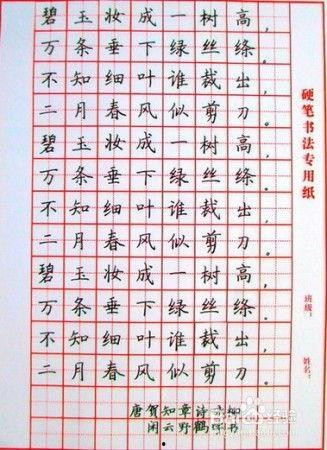 碧玉妆成一树高,
万条垂下绿丝绦。
不知细叶谁裁出,
二月春风似剪刀。
碧玉妆成一树高,
万条垂下绿丝绦。
不知细叶谁裁出,
二月春风似剪刀。
碧玉妆成一树高,
万条垂下绿丝绦。
不知细叶谁裁出,
二月春风似剪刀。
唐贺知章诗柳
闲云野鹤书
硬笔书法专用纸
班级:
姓名: